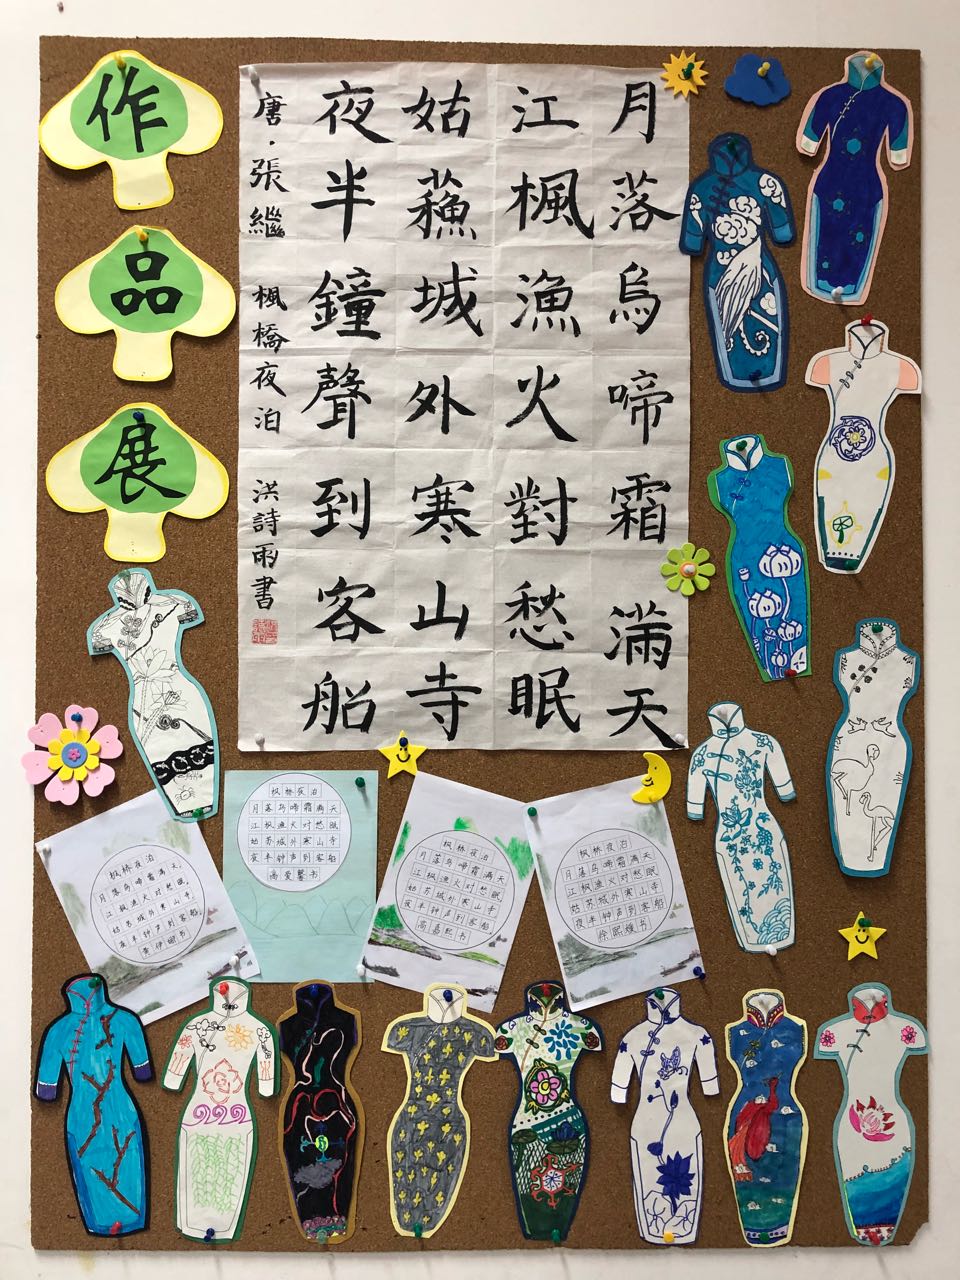 作品展
月落烏啼霜滿天
江楓漁火對愁眠
姑蘓城外寒山寺
夜半鐘聲到客船
唐·張繼 楓橋夜泊 洪詩雨書
枫林夜泊
月落乌啼霜满天
江枫渔火对愁眠
姑苏城外寒山寺
夜半钟声到客船
枫林夜泊
月落乌啼霜满天
江枫渔火对愁眠
姑苏城外寒山寺
夜半钟声到客船
高爱馨书
枫林夜泊
月落乌啼霜满天
江枫渔火对愁眠
姑苏城外寒山寺
夜半钟声到客船
枫林夜泊
月落乌啼霜满天
江枫渔火对愁眠
姑苏城外寒山寺
夜半钟声到客船